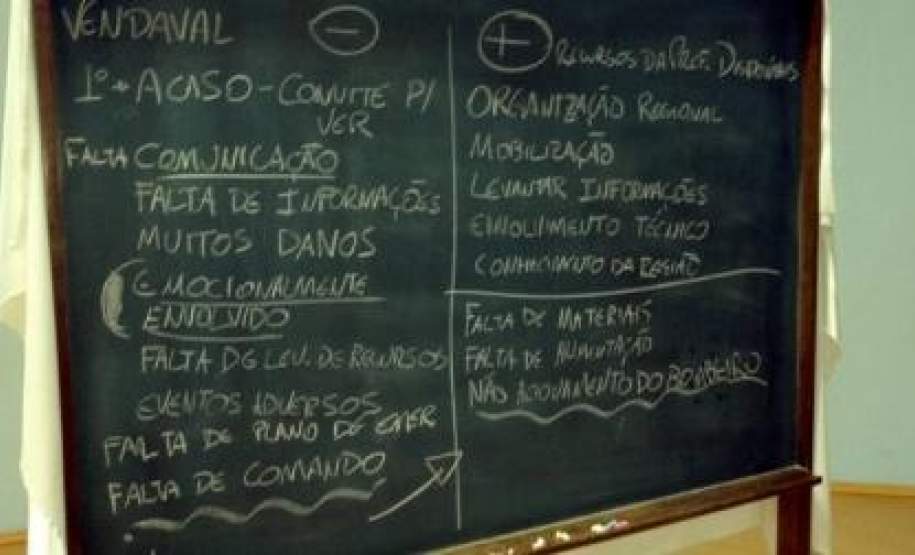 VENDAVAL
-
1º → ACASO - CONVITE P/
VER
FALTA COMUNICAÇÃO
FALTA DE INFORMAÇÕES
MUITOS DANOS
EMOCIONALMENTE
ENVOLVIDO
FALTA DE LEV. DE RECURSOS
EVENTOS ADVERSOS
FALTA DE PLANO DE
FALTA DE COMANDO
+
RECURSOS DA PREF. DISPONÍVEIS
ORGANIZAÇÃO REGIONAL
MOBILIZAÇÃO
LEVANTAR INFORMAÇÕES
ENVOLVIMENTO TÉCNICO
CONHECIMENTO DA REGIÃO
FALTA DE MATERIAIS
FALTA DE ALIMENTAÇÃO
NÃO ACIONAMENTO DO BOMBEIRO